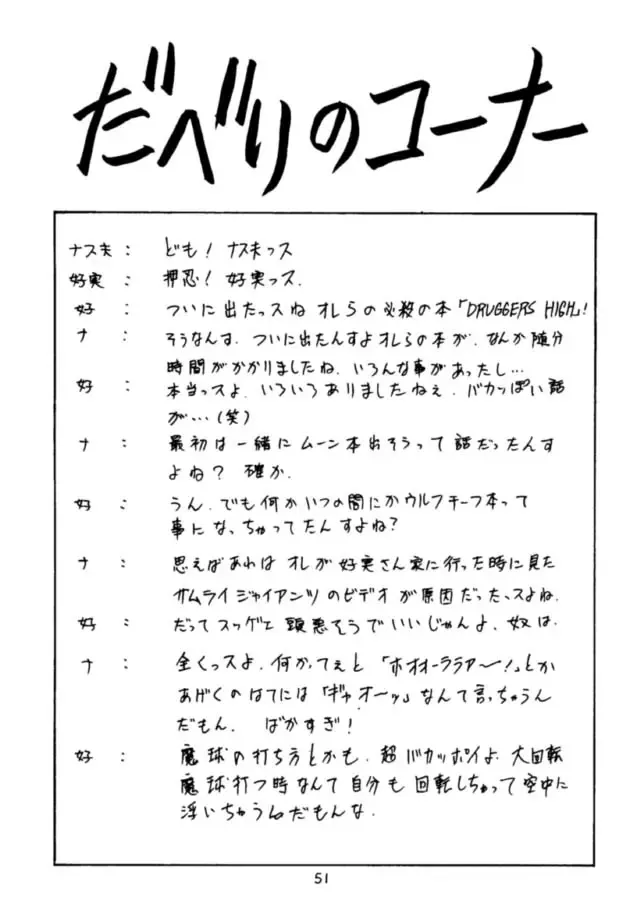 だべりのコーナー
ナス夫： ども！ナス夫っス
好実： 押忍！好実っス.
好： ついに出たっスね オレらの必殺の本「DRUGGERS HIGH」!
ナ： そうなんす. ついに出たんすよオレらの本が. なんか随分
時間がかかりましたね. いろんな事があったし…
好： 本当っスよ. いろいろありましたねぇ. バカっぽい話
が…(笑)
ナ： 最初は一緒にムーン本出そうって話だったんす
よね？確か.
好： うん. でも何かいつの間にかウルフチーフ本って
事になっちゃってたんすよね？
ナ： 思えばあれは オレが好実さん家に行った時に見た
サムライジャイアンツのビデオが原因だったっスよね.
好： だってスッゲェ頭悪そうでいいじゃんよ. 奴は.
ナ： 全くっスよ. 何かってぇと「ホオオーララアー！」とか
あげくのはてには「ギャオーッ」なんて言っちゃうん
だもん. ばかすぎ！
好： 魔球の打ち方とかも. 超バカッポイよ. 大回転
魔球打つ時なんて自分も回転しちゃって空中に
浮いちゃうんだもんな.
51